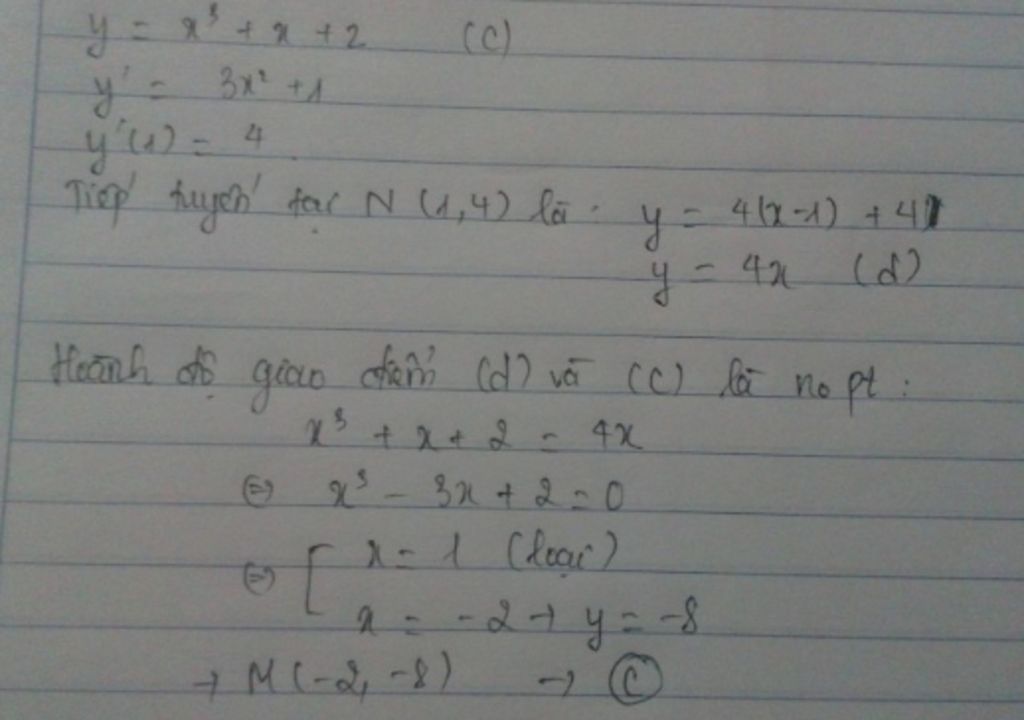 y = x³ + x + 2 (C)
y' = 3x² + 1
y'(1) = 4
Tiếp tuyến tại N (1,4) là: y = 4(x-1) + 4
y = 4x (d)
Hoành độ giao điểm (d) và (C) là no pt :
x³ + x + 2 = 4x
⇔ x³ - 3x + 2 = 0
⇔ [ x = 1 (loại)
x = -2 → y = -8
→ M(-2, -8) → Ⓒ